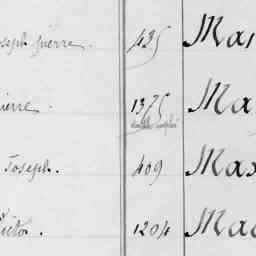 oseph pierre. 435 Mar
ierre. 1375 Ma
Joseph. 409 Max
Victor. 1204 Mac